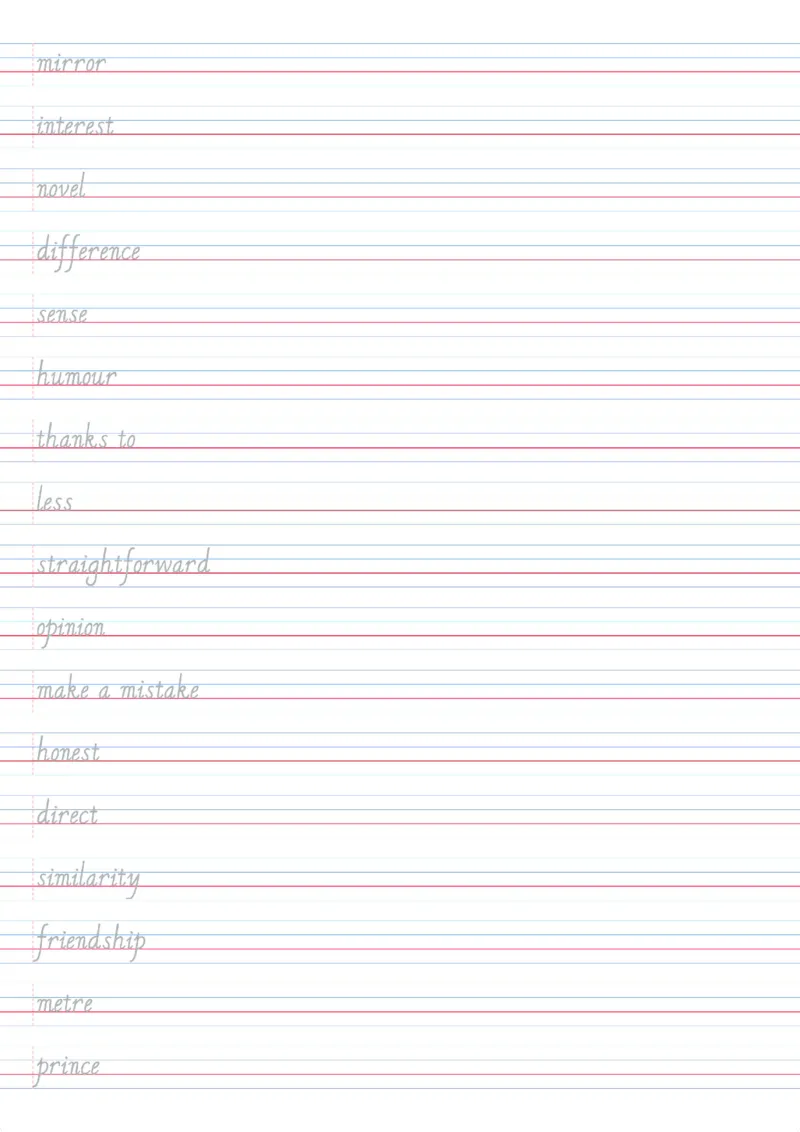 mirror
interest
novel
difference
sense
humour
thanks to
less
straightforward
opinion
make a mistake
honest
direct
similarity
friendship
metre
prince